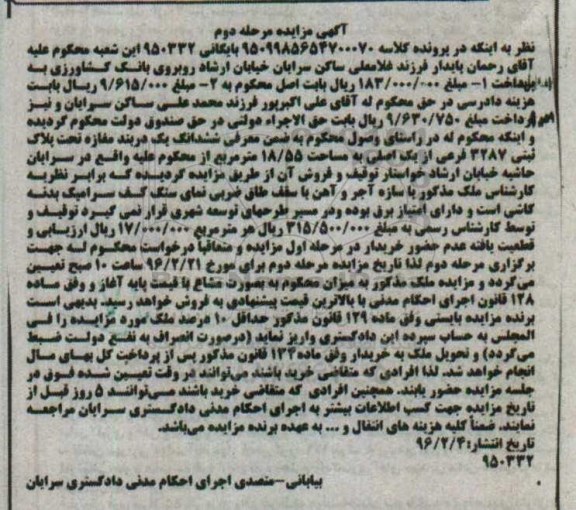 آگهی مزایده مرحله دوم
نظر به اینکه در پرونده کلاسه ۹۵۰۹۹۸۵۶۵۴۷۰۰۰۷۰ بایگانی ۹۵۰۳۳۲ این شعبه محکوم علیه
آقای رحمان پایدار فرزند غلامعلی ساکن سرایان خیابان ارشاد روبروی بانک کشاورزی به
پرداخت ۱- مبلغ ۱۸۳/۰۰۰/۰۰۰ ریال بابت اصل محکوم به ۲- مبلغ ۹/۶۱۵/۰۰۰ ریال بابت
هزینه دادرسی در حق محکوم له آقای علی اکبرپور فرزند محمد علی ساکن سرایان و نیز
پرداخت مبلغ ۹/۶۳۰/۷۵۰ ریال بابت حق الاجراء دولتی در حق صندوق دولت محکوم گردیده
و اینکه محکوم له در راستای وصول محکوم به ضمن معرفی ششدانگ یک دربند مغازه تحت پلاک
ثبتی ۳۲۸۷ فرعی از یک اصلی به مساحت ۱۸/۵۵ مترمربع از محکوم علیه واقع در سرایان
حاشیه خیابان ارشاد خواستار توقیف و فروش آن از طریق مزایده گردیده که برابر نظریه
کارشناس ملک مذکور با سازه آجر و آهن با سقف طاق ضربی نمای سنگ کف سرامیک بدنه
کاشی است و دارای امتیاز برق بوده ودر مسیر طرحهای توسعه شهری قرار نمی گیرد توقیف و
توسط کارشناس رسمی به مبلغ ۳۱۵/۵۰۰/۰۰۰ ریال هر مترمربع ۱۷/۰۰۰/۰۰۰ ریال ارزیابی و
قطعیت یافته عدم حضور خریدار در مرحله اول مزایده و متعاقبا درخواست محکوم له جهت
برگزاری مرحله دوم لذا تاریخ مزایده مرحله دوم برای مورخ ۹۶/۲/۲۱ ساعت ۱۰ صبح تعیین
می‌گردد و مزایده ملک مذکور به میزان محکوم به بصورت مشاع با قیمت پایه آغاز و وفق ماده
۱۲۸ قانون اجرای احکام مدنی با بالاترین قیمت پیشنهادی به فروش خواهد رسید. بدیهی است
برنده مزایده بایستی وفق ماده ۱۲۹ قانون مذکور حداقل ۱۰ درصد ملک مورد مزایده را فی
المجلس به حساب سپرده این دادگستری واریز نماید (درصورت انصراف به نفع دولت ضبط
می‌گردد) و تحویل ملک به خریدار وفق ماده ۱۳۴ قانون مذکور پس از پرداخت کل بهای مال
انجام خواهد شد. لذا افرادی که متقاضی خرید باشند می‌توانند در وقت تعیین شده فوق در
جلسه مزایده حضور یابند. همچنین افرادی که متقاضی خرید باشند می‌توانند ۵ روز قبل از
تاریخ مزایده جهت کسب اطلاعات بیشتر به اجرای احکام مدنی دادگستری سرایان مراجعه
نمایند. ضمناً کلیه هزینه های انتقال و ... به عهده برنده مزایده می‌باشد.
تاریخ انتشار: ۹۶/۲/۴
۹۵۰۳۳۲
بیابانی-متصدی اجرای احکام مدنی دادگستری سرایان